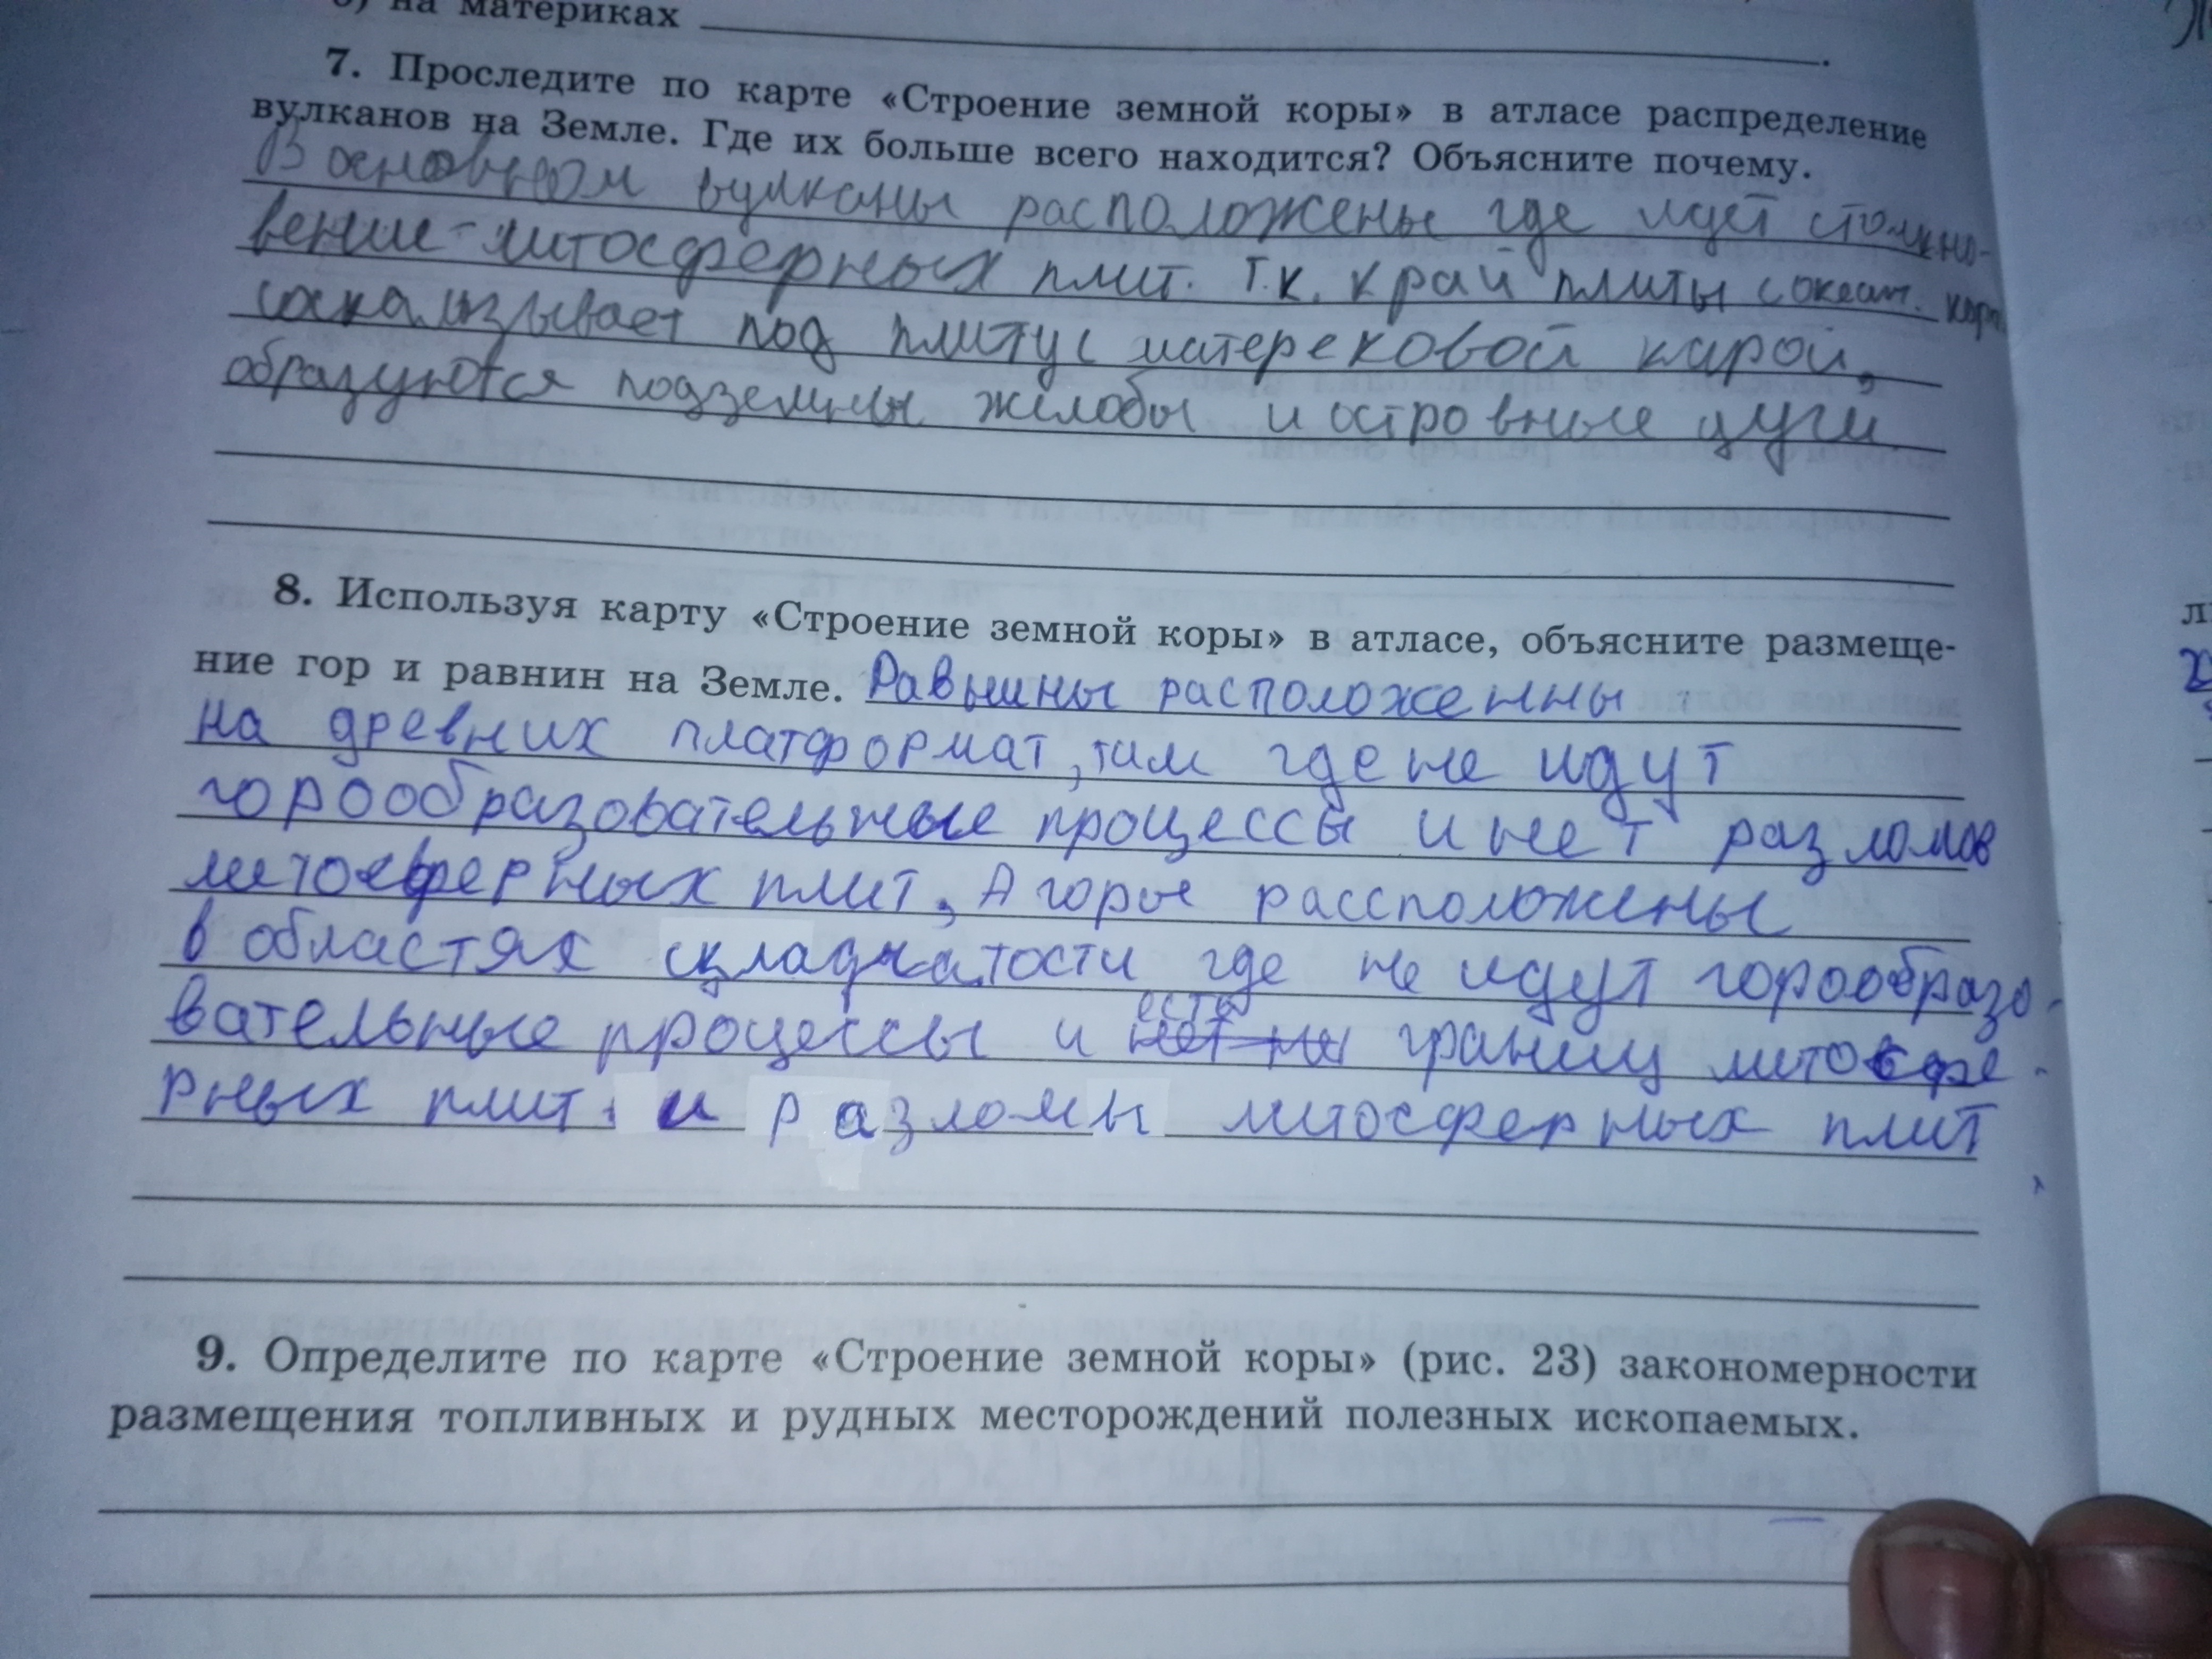 на материках
7. Проследите по карте «Строение земной коры» в атласе распределение
вулканов на Земле. Где их больше всего находится? Объясните почему.
В основном вулканы расположены где идет столкно-
вение литосферных плит. Т.к. край плиты с океан. кор.
соскальзывает под плиту с матерековой карой,
образуются подземны желобы и островные дуги
8. Используя карту «Строение земной коры» в атласе, объясните размеще-
ние гор и равнин на Земле. Равнины расположенны
на древних платформат, там где не идут
горообразовательные процессы и нет разломов
литосферных плит, А горы рассположены
в областях складчатости где не идут горообразо-
вательные процессы и есть границ литосфе-
рных плит. и разломы литосферных плит
9. Определите по карте «Строение земной коры» (рис. 23) закономерности
размещения топливных и рудных месторождений полезных ископаемых.